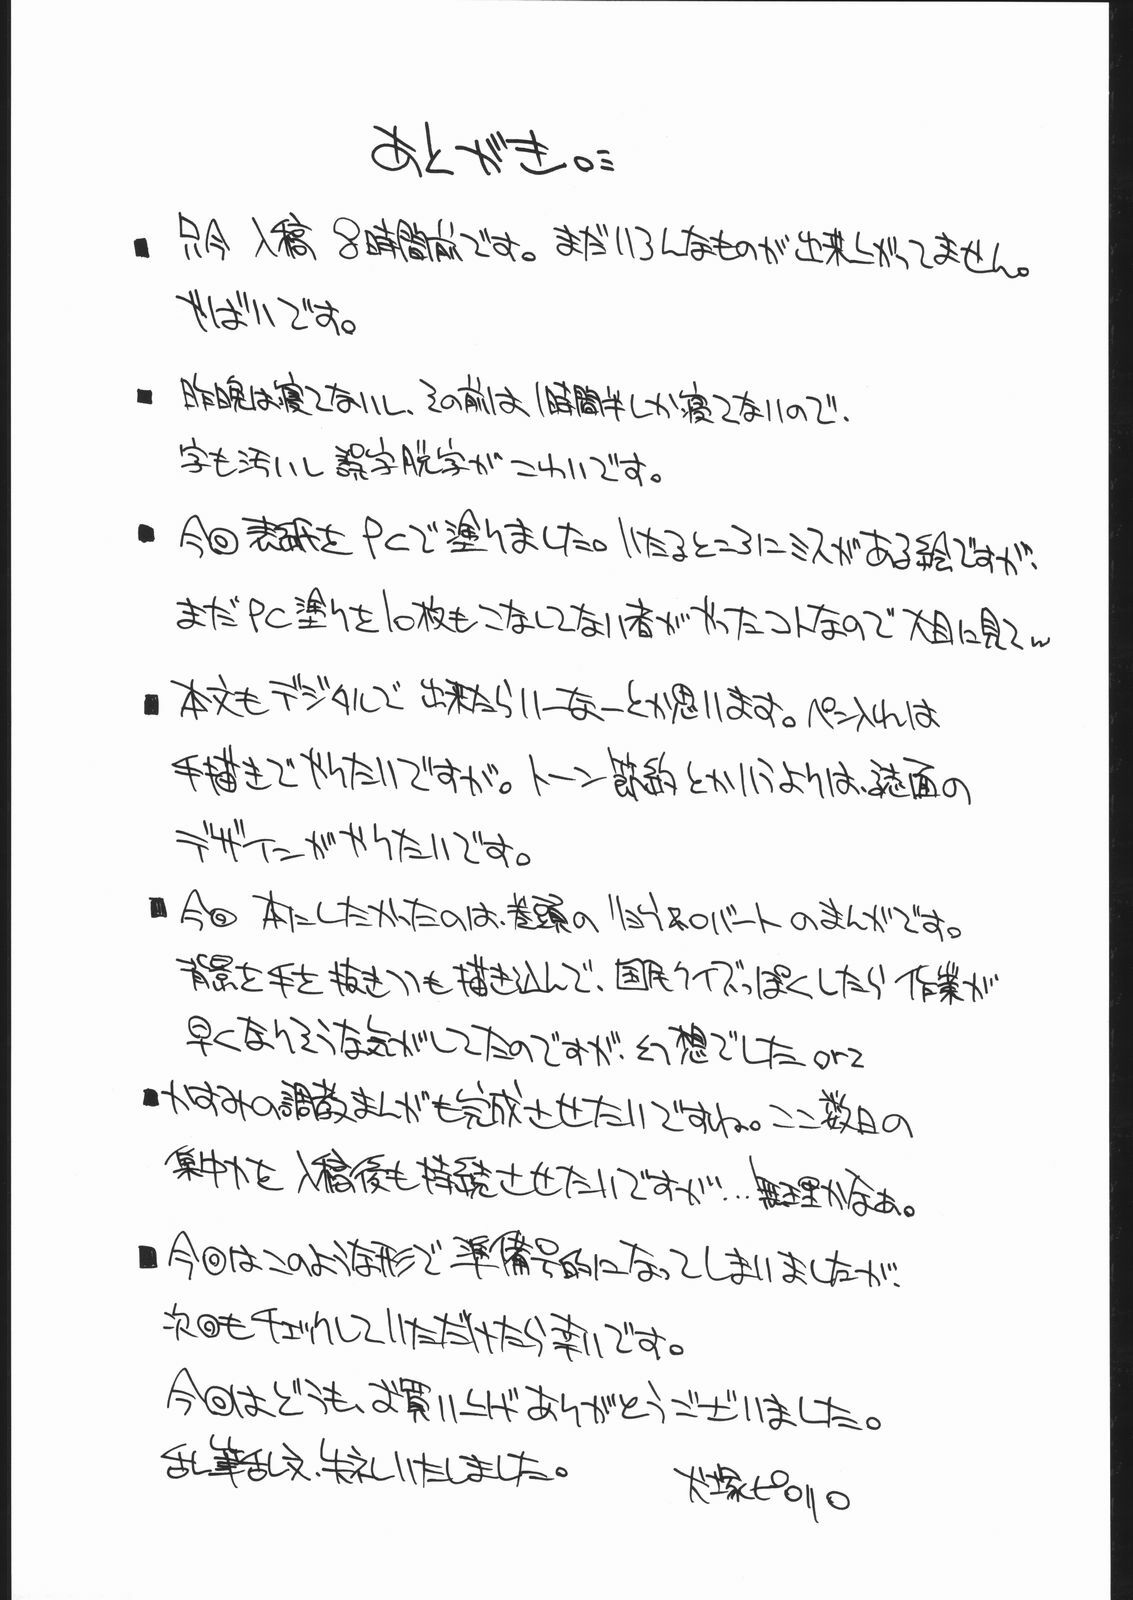 あとがき。
■只今 入稿 8時間前です。まだいろんなものが出来上がってません。
やばいです。
■昨晩は寝てないし、その前は、1時間半しか寝てないので、
字も汚いし 誤字脱字が こわいです。
■今回表紙を PCで塗りました。いたるところにミスがある絵ですが、
まだPC塗りを10枚もこなしてない者がやったコトなので 大目に見てw
■本文もデジタルで 出来たらいーなーとか思います。ペン入れは
手描きでやりたいですが。トーン節約とかいうよりは、誌面の
デザインがやりたいです。
■今回 本にしたかったのは、巻頭の リョウ&ロバート のまんがです。
背景を手を抜きつつも描き込んで、国民クイズっぽくしたら 作業が
早くなりそうな気がしてたのですが、幻想でした orz
■かすみの調教まんがも完成させたいですね。ここ数日の
集中力を 入稿後も持続させたいですが…無理かなぁ。
■今回はこのような形で 準備号的になってしまいましたが、
次回もチェックしていただけたら幸いです。
今回はどうも、お買い上げありがとうございました。
乱筆乱文、失礼いたしました。
犬塚ピロリロ